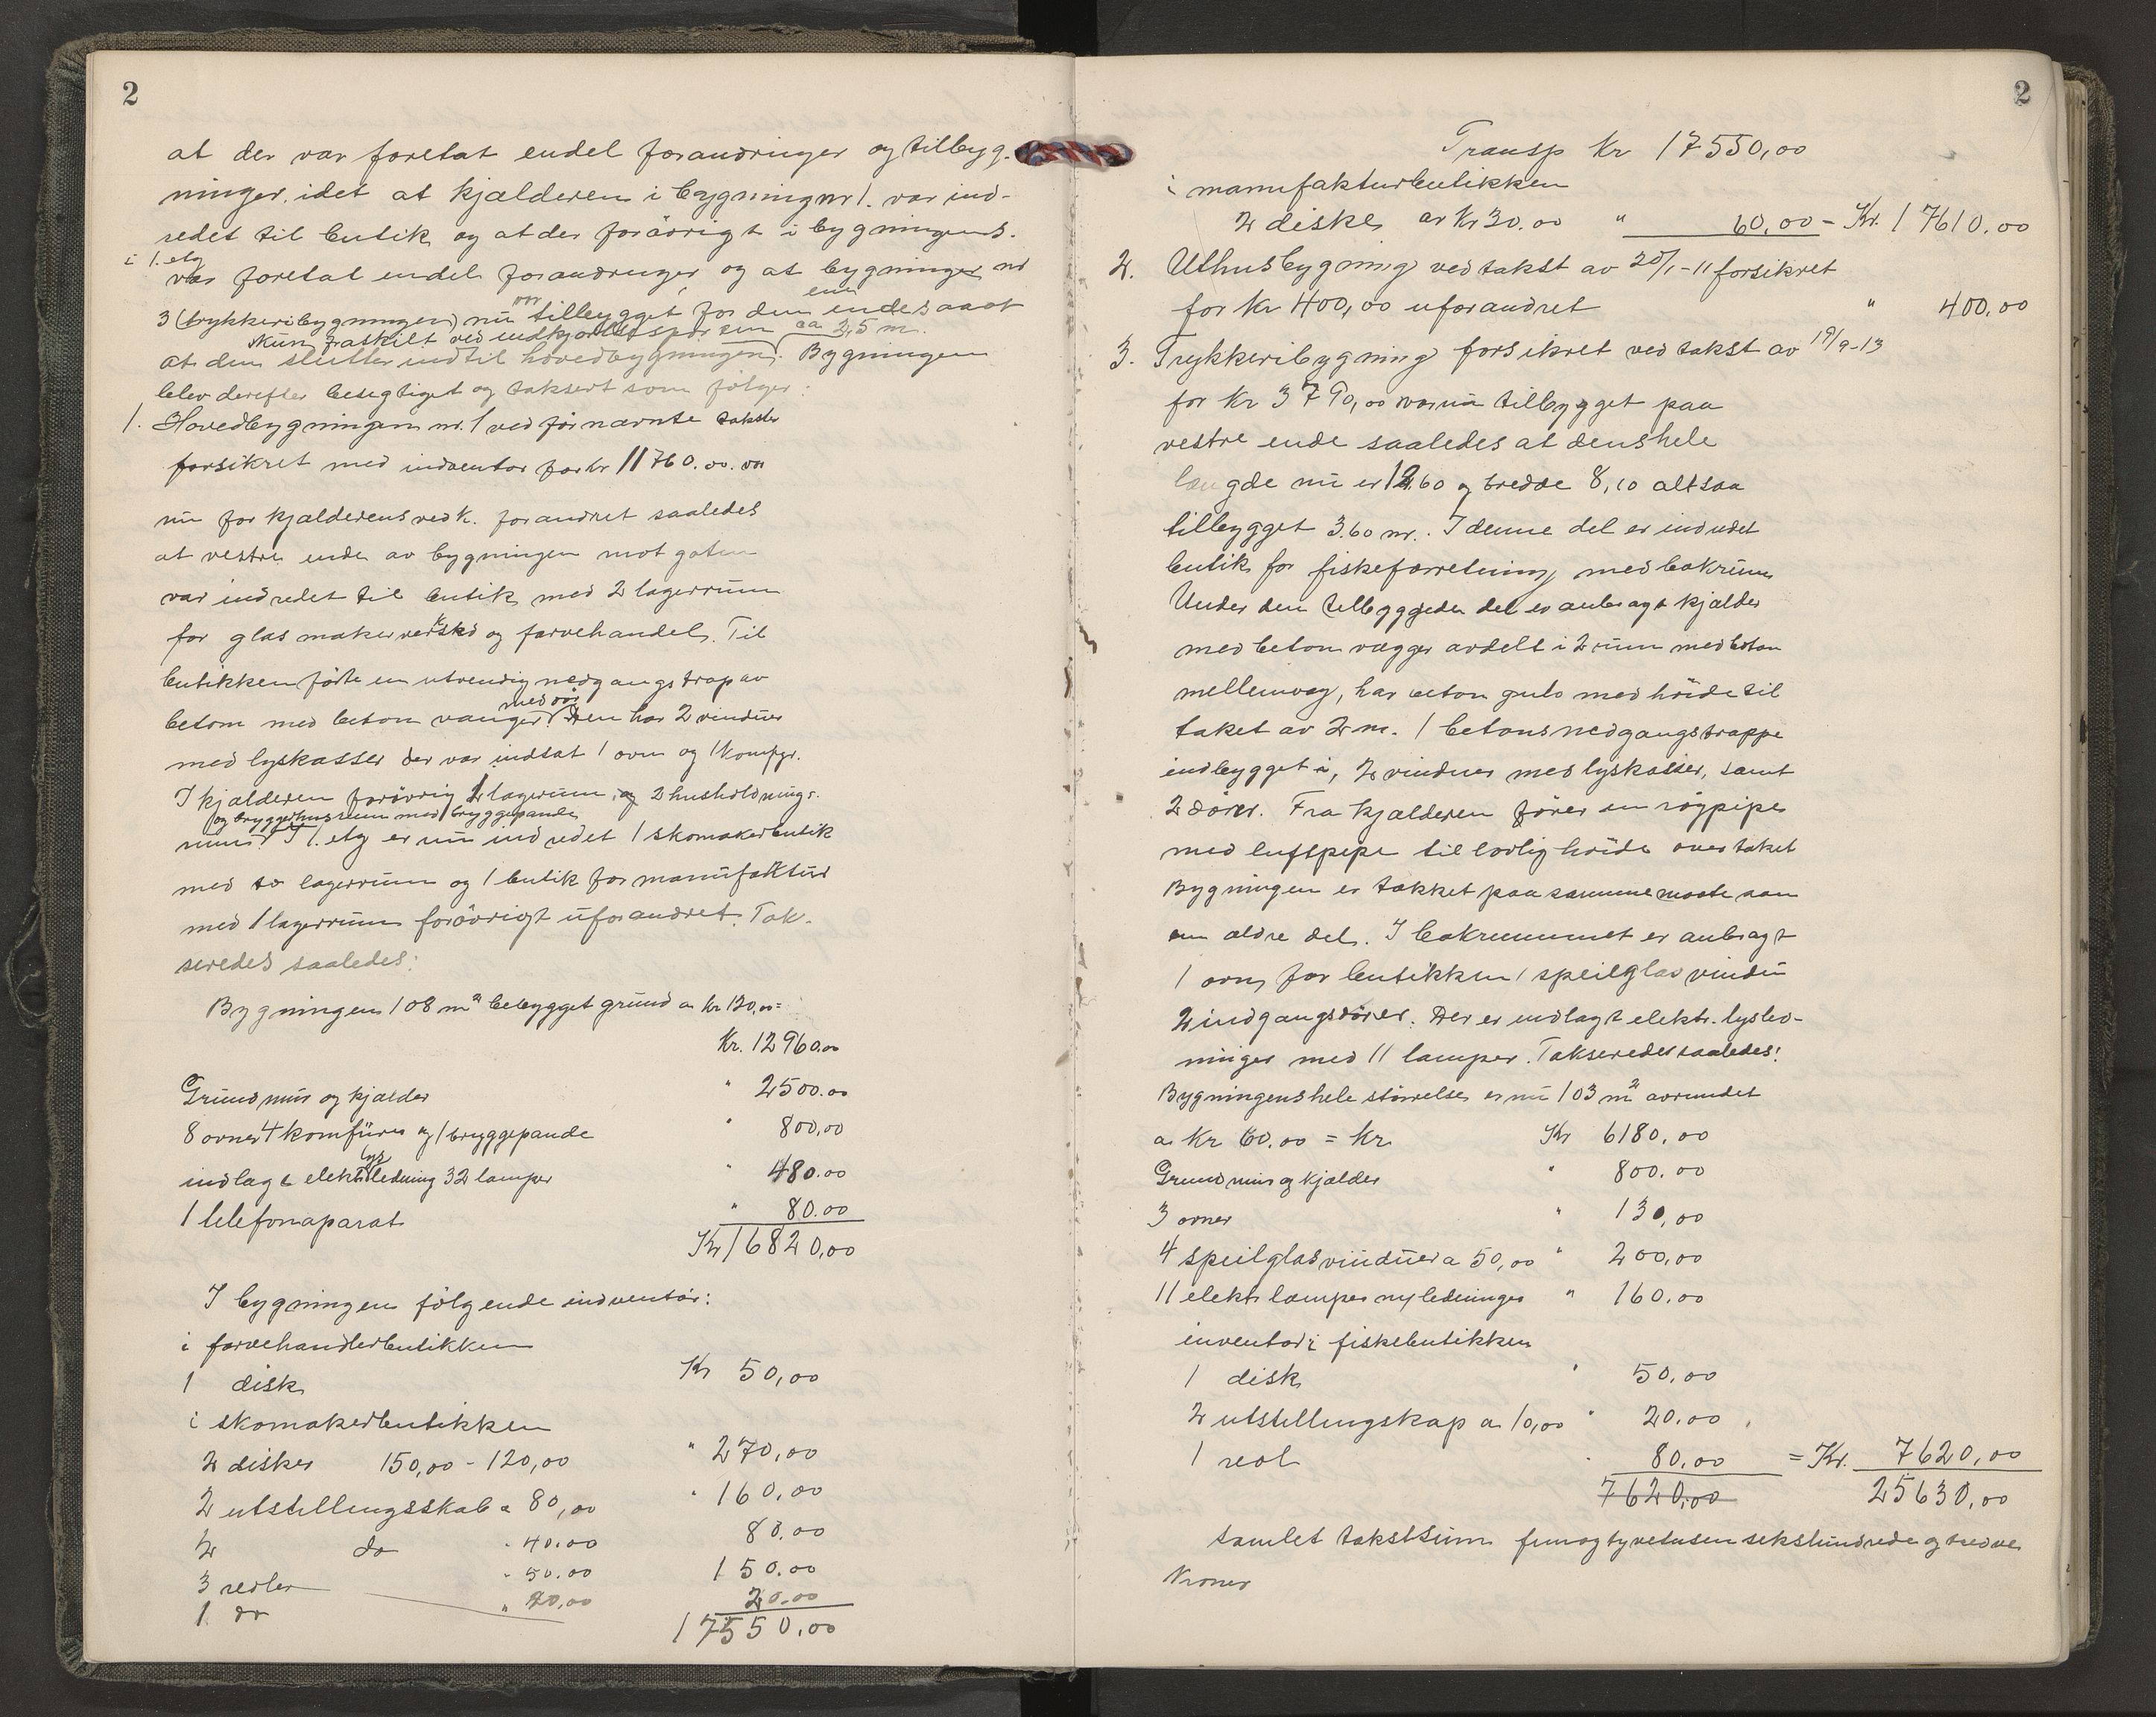 2
at der var foretat endel forandringer og tilbyg-
ninger, idet at kjælderen i bygning nr 1. var ind-
redet til butik og at der forövrigt i bygningens
i 1. etg
var foretat endel forandringer, og at bygningen nr
var ene
3 (trykkeribygningen) nu tilbygget for den ende saa at
kun fraskilt ved indkjörselsport ca 2,5 m.
at den slutter indtil hovedbygningen. Bygningen
blev derefter besegtiget og taksert som fölger:
1. Hovedbygningen nr. 1 ved førnævnte takster
forsikret med indventar for kr 11760.00. var
nu for kjælderens vedk. forandret saaledes
at vestre ende av bygningen mot gaten
var indredet til butik med 2 lagerrum
for glasmakerverksted og farvehandel. Til
butikken förte en utvendig nedgangstrap av
med dör
betom med betom vanger. Den har 2 vinduer
med lyskasser der var indsat 1 ovn og 1 komfyr.
I kjælderen forövrig 2 lagerrum, og 2 husholdnings-
og bryggerhusrum med 1 bryggepande
rum. I 1. etg er nu indredet 1 skomakerbutik
med to lagerrum og 1 butik for manufaktur
med 1 lagerrum forövrigt uforandret. Tak-
seredes saaledes:
Bygningen 108 m² bebygget grund a kr 120,00=
Kr. 12960.00
Grundmur og kjælder " 2500.00
8 ovner 4 komfürer og 1 bryggepande " 800,00
lys
indlagt elektr ledning 32 lamper " 480.00
1 telefonaparat " 80.00
Kr 16820,00
I bygningen fölgende indventar:
i farvehandlerbutikken
1 disk Kr 50,00
i skomakerbutikken
2 disker 150,00 - 120,00 " 270,00
2 utstillingsskab a 80,00 " 160,00
2 do " 40.00 80.00
3 reoler " 50.00 150.00
1. do " 20,00 20.00
17550.00
2
Transp Kr 17550,00
i manufakturbutikken
2 diske av Kr 30.00 " 60,00 - Kr. 17610.00
2. Uthusbygning ved takst av 20/1-11 forsikret
for Kr 400,00 uforandret " 400.00
3. Trykkeribygning forsikret ved takst av 19/9-13
for Kr 3790,00 var nu tilbygget paa
vestre ende saaledes at dens hele
længde nu er 12.60 og bredde 8,10 altsaa
tilbygget 3.60 m. I denne del er indredet
butik for fiskeforretning med bakrum
Under den tilbyggede del er anbragt kjælder
med betom vægger avdelt i 2 rum med betom
mellemvæg, har betom gulv med höide til
taket av 2 m. 1 betons nedgangstrappe
indbygget i, 2 vinduer med lyskasser, samt
2 dörer. Fra kjælderen förer en rögpipe
med luftpipe til lovlig höide over taket
Bygningen er tækket paa samme maate som
en ældre del. I bakrummet er anbragt
1 ovn, for butikken 1 speilglas vindu
2 indgangsdörer. Der er indlagt elektr. lysled-
ninger med 11 lamper. Takseredes saaledes:
Bygningens hele störrelse er nu 103 m² avrundet
a Kr 60.00 = Kr. Kr 6180.00
Grundmur og kjælder " 800.00
3 ovner " 130,00
4 speilglasvinduer a 50,00 " 200,00
11 elektr lamper ny ledninger " 160.00
inventar i fiskebutikken
1 disk " 50.00
2 utstillingskap a 10,00 " 20.00
1 reol " 80.00 = Kr. 7620,00
7620,00 25630,00
samlet takstsum femogtyvetusen sekshundrede og tredve
Kroner